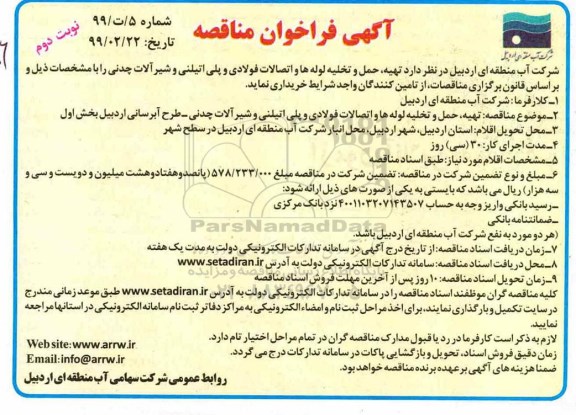 شماره ۵/ت/۹۹
تاریخ: ۹۹/۰۲/۲۲
نوبت دوم
آگهی فراخوان مناقصه
شرکت آب منطقه ای اردبیل
شرکت آب منطقه ای اردبیل در نظر دارد تهیه، حمل و تخلیه لوله ها و اتصالات فولادی و پلی اتیلنی و شیرآلات چدنی را با مشخصات ذیل و
بر اساس قانون برگزاری مناقصات، از تامین کنندگان واجد شرایط خریداری نماید.
۱-کارفرما: شرکت آب منطقه ای اردبیل
۲-موضوع مناقصه: تهیه، حمل و تخلیه لوله ها و اتصالات فولادی و پلی اتیلنی و شیر آلات چدنی -طرح آبرسانی اردبیل بخش اول
۳-محل تحویل اقلام: استان اردبیل، شهر اردبیل، محل انبار شرکت آب منطقه ای اردبیل در سطح شهر
۴-مدت اجرای کار: ۳۰ (سی) روز
۵-مشخصات اقلام مورد نیاز: طبق اسناد مناقصه
۶-مبلغ و نوع تضمین شرکت در مناقصه: تضمین شرکت در مناقصه مبلغ ۵۷۸/۲۳۳/۰۰۰ (پانصد و هفتاد و هشت میلیون و دویست و سی و
سه هزار) ریال می باشد که بایستی به یکی از صورت های ذیل ارائه شود:
-رسید بانکی واریز وجه به حساب ۴۰۰۱۱۰۳۲۰۷۱۴۳۵۰۷ نزد بانک مرکزی
-ضمانتنامه بانکی
(هر دو مورد به نفع شرکت آب منطقه ای اردبیل باشد.
۷-زمان دریافت اسناد مناقصه: از تاریخ درج آگهی در سامانه تدارکات الکترونیکی دولت به مدت یک هفته
۸-محل دریافت اسناد مناقصه: سامانه تدارکات الکترونیکی دولت به آدرس www.setadiran.ir
۹-زمان تحویل اسناد مناقصه: ۱۰ روز پس از آخرین مهلت فروش اسناد مناقصه
کلیه مناقصه گران موظفند اسناد مناقصه را در سامانه تدارکات الکترونیکی دولت به آدرس www.setadiran.ir طبق موعد زمانی مندرج
در سایت تکمیل و بارگذاری نمایند، برای اخذ مراحل ثبت نام و امضاء الکترونیکی به مراکز دفاتر ثبت نام سامانه الکترونیکی در استانها مراجعه
نمایید.
لازم به ذکر است کارفرما در رد یا قبول مدارک مناقصه گران در تمام مراحل اختیار تام دارد.
زمان دقیق فروش اسناد، تحویل و بازگشایی پاکات در سامانه تدارکات درج می گردد.
ضمنا هزینه های آگهی بر عهده برنده مناقصه خواهد بود.
Web site: www.arrw.ir
Email: info@arrw.ir
روابط عمومی شرکت سهامی آب منطقه ای اردبیل
ParsNamadData